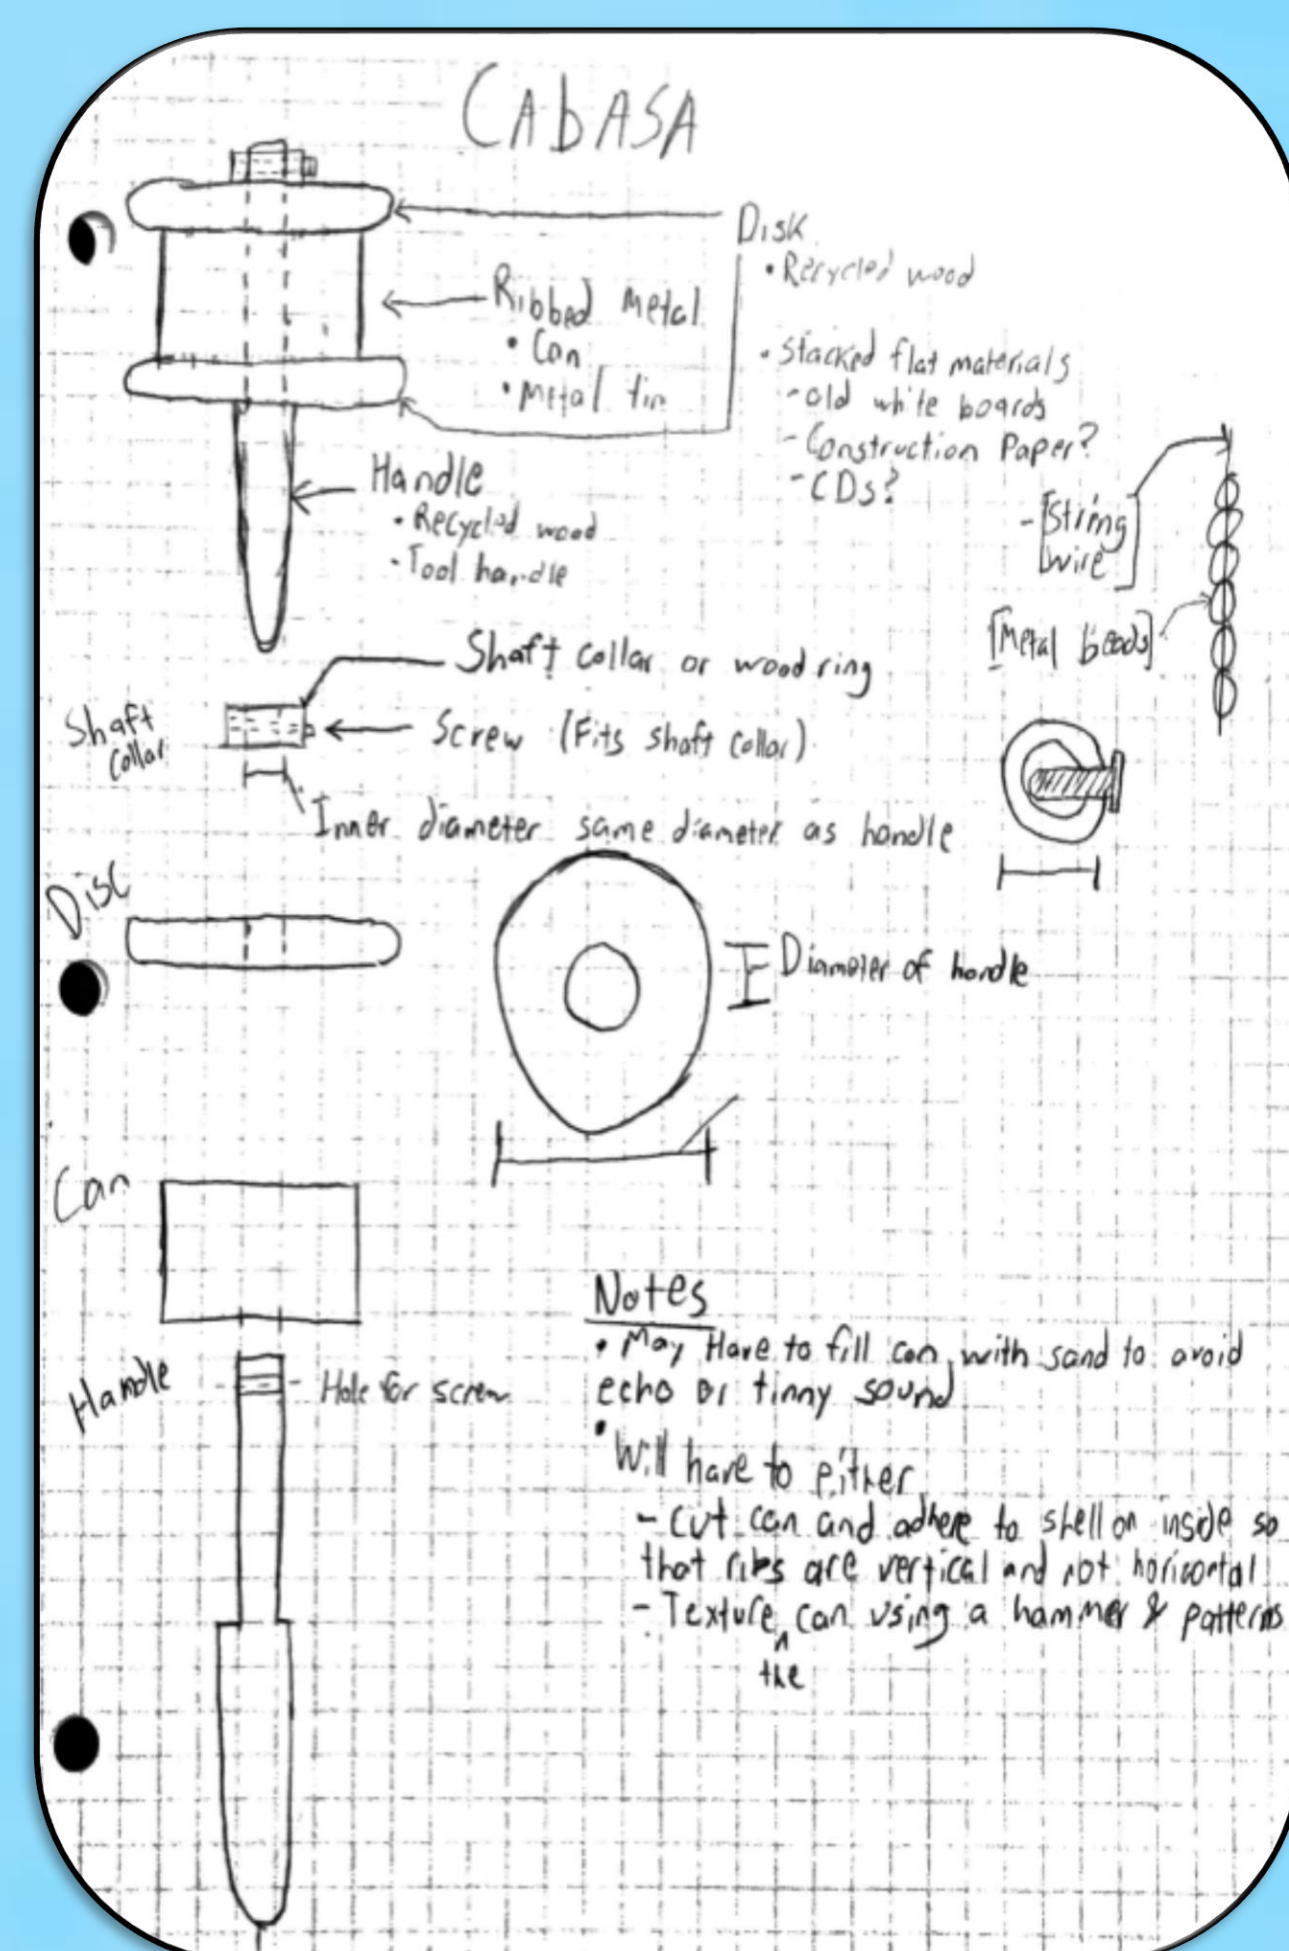 CAbASA
Disk
• Recycled wood
• Stacked flat materials
- old white boards
- Construction Paper?
- CDs?
Ribbed Metal
• Can
• Metal tin
Handle
• Recycled wood
- Tool handle
- [String
wire]
[Metal beads]
Shaft collar or wood ring
Shaft
collar
Screw (Fits shaft collar)
Inner diameter same diameter as handle
Disc
Diameter of handle
Can
Handle
Hole for screw
Notes
• May Have to fill can with sand to avoid
echo or tinny sound
• Will have to either
- Cut can and adhere to shell on inside so
that ribs are vertical and not horizontal
- Texture the can using a hammer & patterns